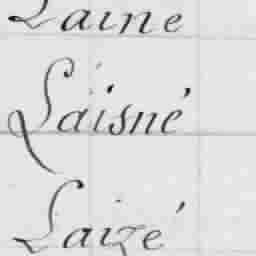 Laine
Laisné
Laizé